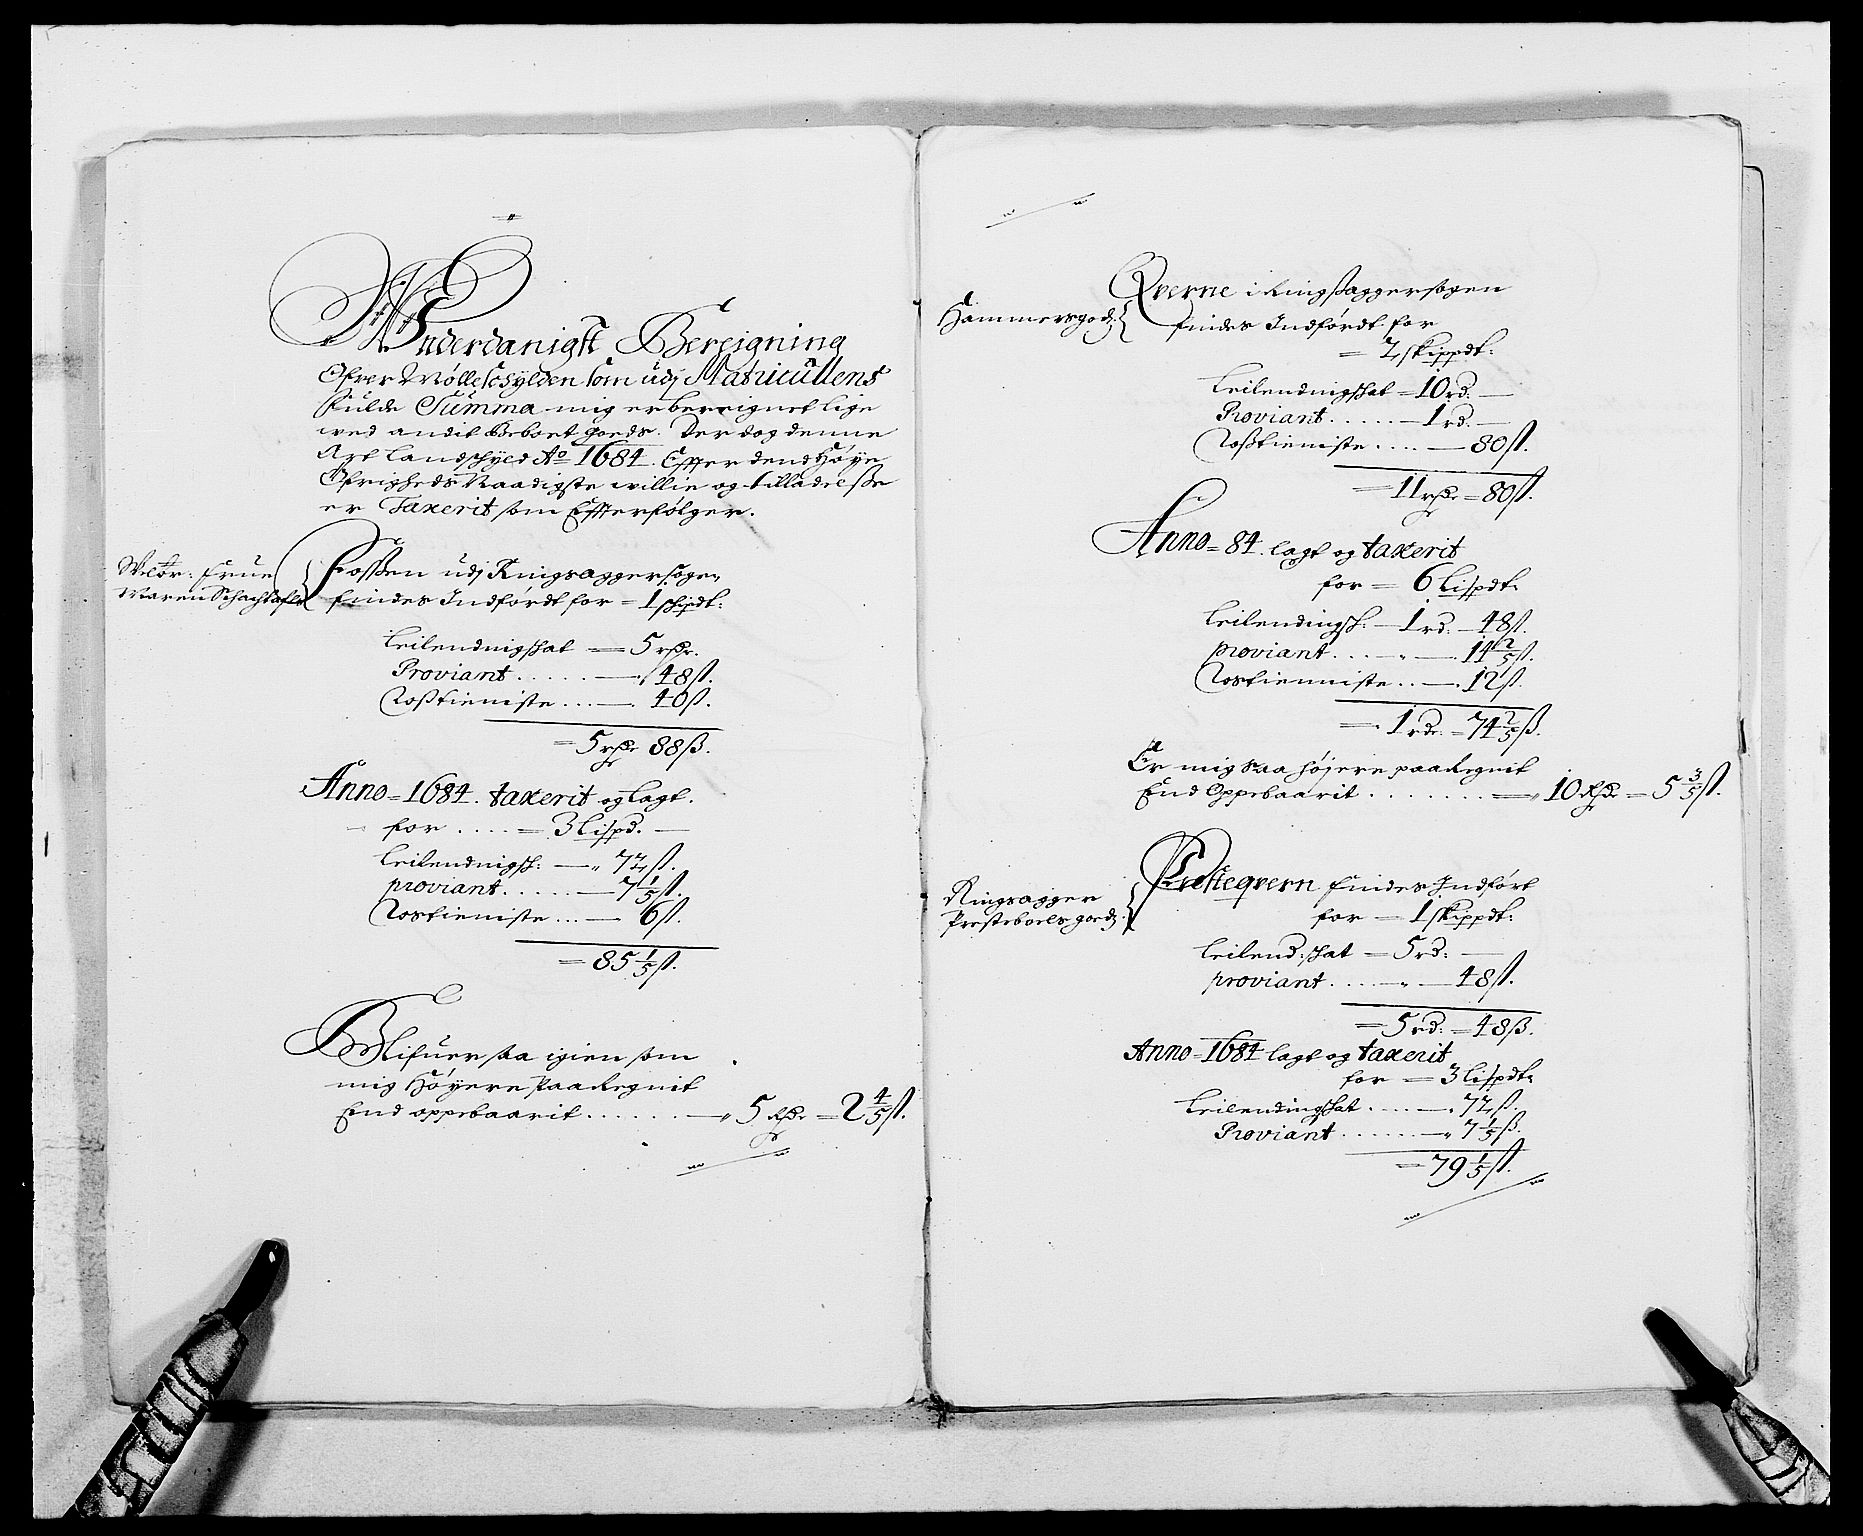 Underdanigst Bereigning
Ofver Mølleschylden som udj Matricullens
fulde Summa mig er bereignet lige
wed andit Beboet goeds. Der dog denne
Art landschyld Ao 1684. Effter dend Høye
Øfrigheds Naadigste willie og tilladelsse
er Taxerit som Effterfølger.
Welbr: Frue
Maren Schachtafls
Fossen udj Ringsaggersogen
findes Indførdt for = 1 schipdt:
Leilendnigschat = 5 rixdr.
Proviant . . . . . . — 48 ß.
Rosstieniste . . . — 40 ß.
= 5 rixdr 88 ß.
Anno = 1684. taxerit og lagt.
for . . . . = 3 lispd. —
Leilendnigsch: — " 72 ß.
proviant . . . . . — 7 1/5 ß.
Rostieniste . . . — 6 ß.
= 85 1/5 ß.
Blifuer saa igien som
mig Høyere Paa Regnit
End oppebaarit . . . . . . — " 5 Rixdr = 2 4/5 ß.
Hammersgodz
Qverne i Ringssaggersogen
findes Indførdt for
= 2 skippdt:
Leilendnigschat = 10 rd. —
Proviant . . . . . — 1 rd. —
Rosstieniste . . . . — 80 ß.
= 11 rixdr = 80 ß.
Anno = 84. lagt og taxerit
for = 6 lispdt:
Leilendingsch: — 1 rd. — 48 ß.
proviant . . . . " — . 14 2/5 ß.
Rostienniste . . — . 12 ß.
= . 1 rdr. = 74 2/5 ß.
Er mig saa højere paa Regnit
End Oppebaarit . . . . . . . = " 10 Rixdr = 5 3/5 ß.
Ringsagger
Presteboels goedz
Presteqvern findes Indført
for = 1 skippdt:
Leilend: schat = 5 rd: —
proviant . . . . — " — 48 ß.
= 5 rd: = 48 ß.
Anno = 1684 lagt og taxerit
for = 3 lispdt:
Leilendingschat . . . . — " 72 ß.
Proviant . . . . . . — " 7 1/5 ß.
= 79 1/5 ß.